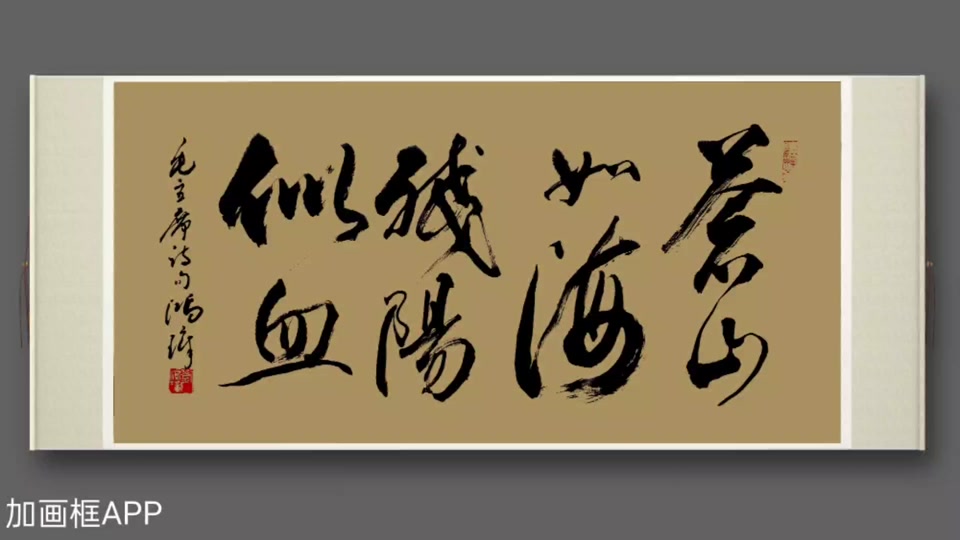 蒼山
如海
残陽
似血
毛主席诗句鸿
加画框APP